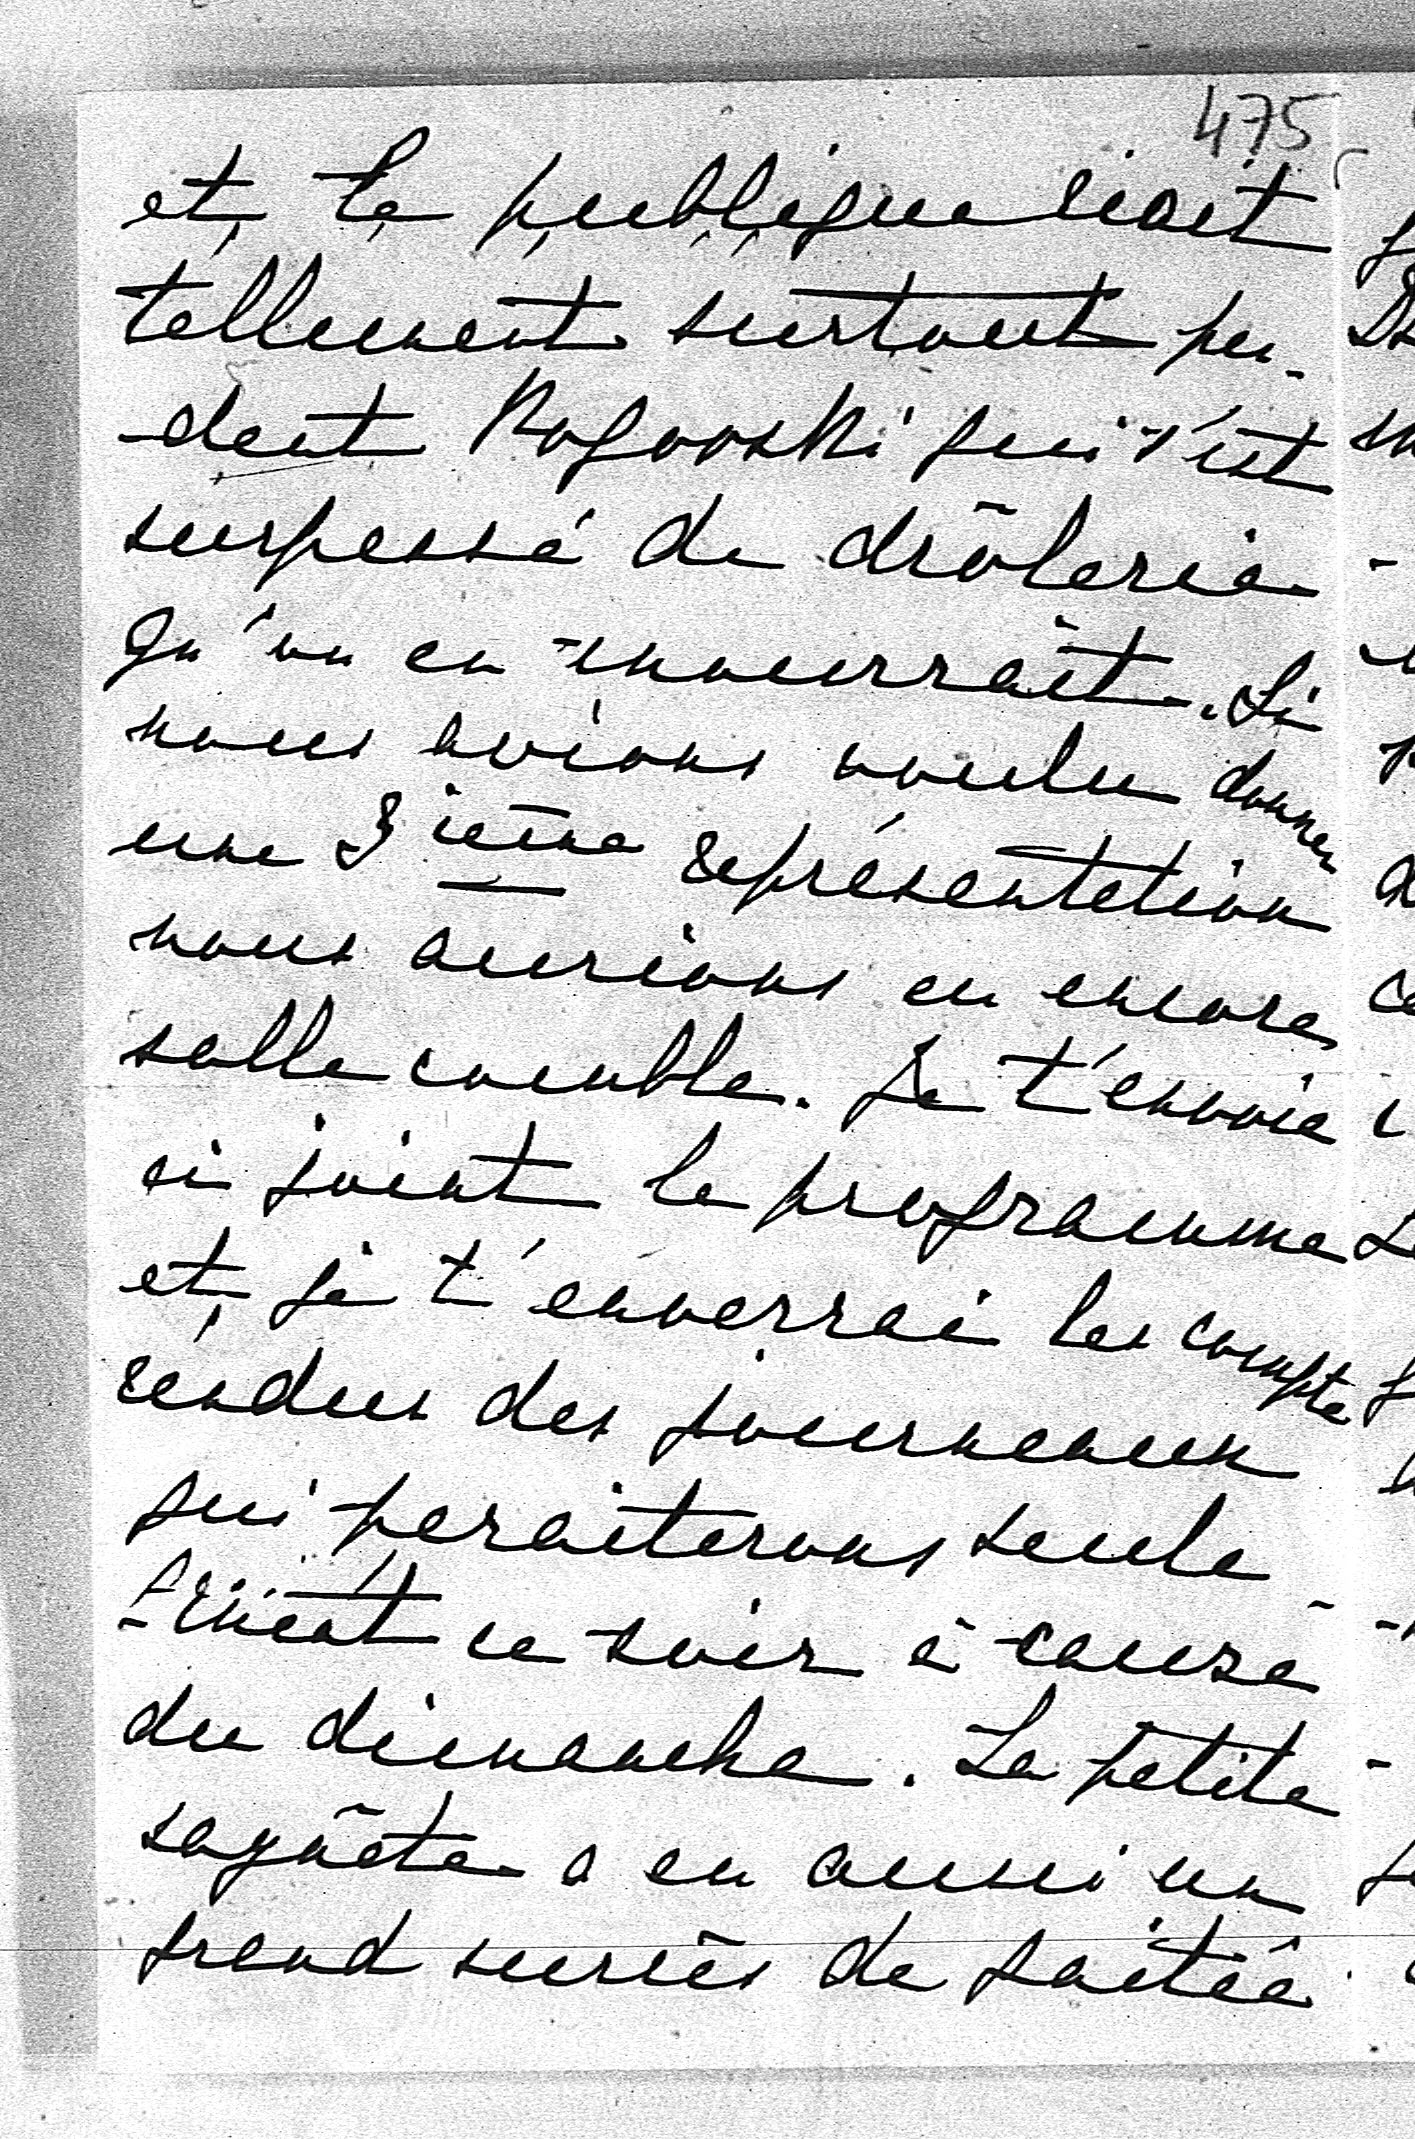 475
et le publique riait
tellement surtout pen-
-dant Rogowski qui s'est
surpassé de drôlerie
qu'on en mourrait. Si
nous avions voulu donner
une 3ième représentation
nous aurions eu encore
salle comble. Je t'envoie
ci joint le programme
et je t'enverrai les compte
rendus des journeaux
qui paraiterons seule-
-ment ce soir à cause
du dimanche. La petite
saynète a eu aussi un
grand succès de gaîtée.